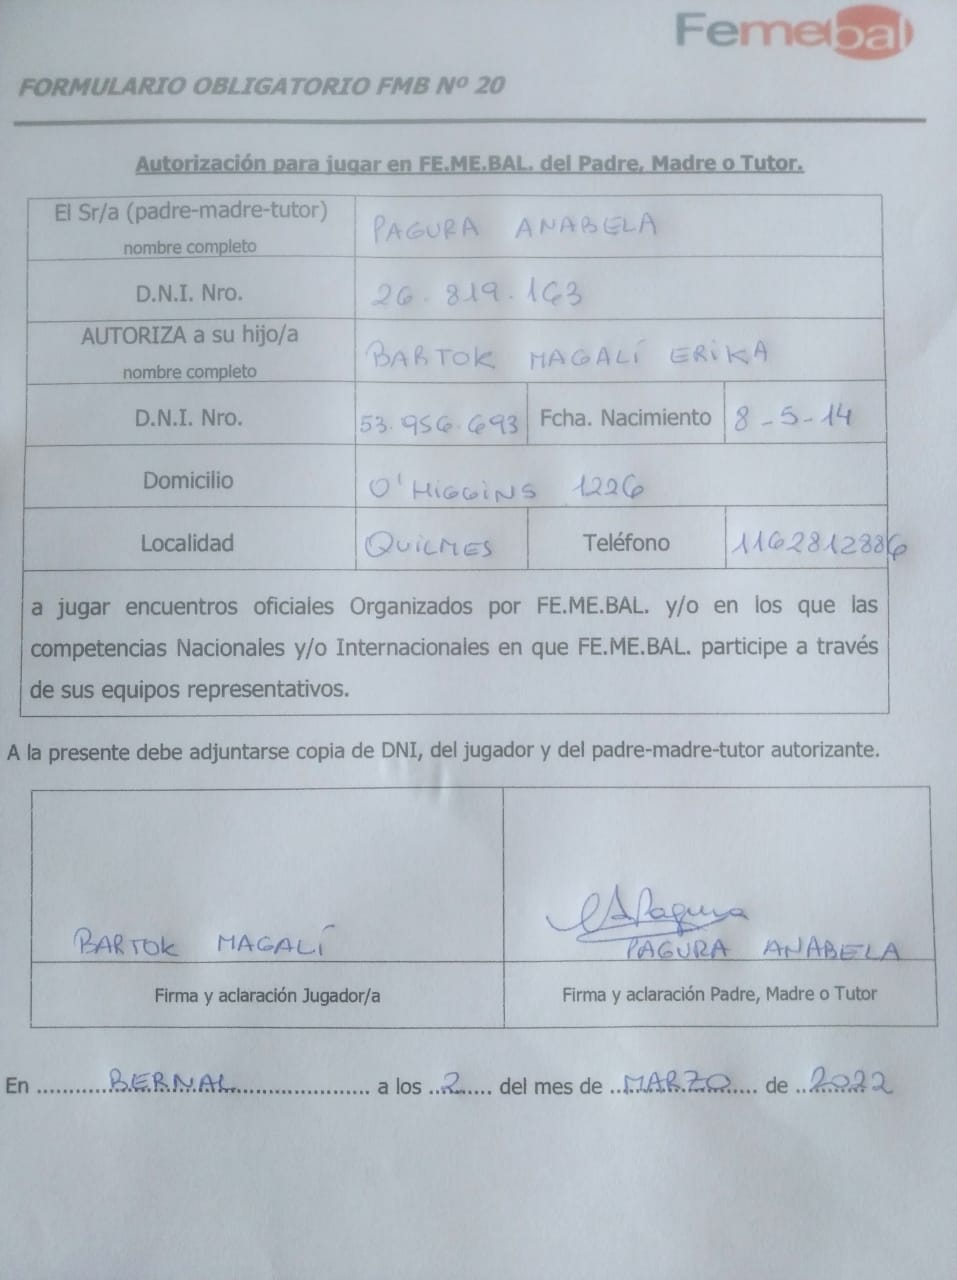 Femebal
FORMULARIO OBLIGATORIO FMB Nº 20
Autorización para jugar en FE.ME.BAL. del Padre, Madre o Tutor.
El Sr/a (padre-madre-tutor) PAGURA ANABELA
nombre completo
D.N.I. Nro. 26.819.163
AUTORIZA a su hijo/a BARTOK MAGALÍ ERIKA
nombre completo
D.N.I. Nro. 53.956.693 Fcha. Nacimiento 8-5-14
Domicilio O'HIGGINS 1226
Localidad QUILMES Teléfono 1162812886
a jugar encuentros oficiales Organizados por FE.ME.BAL. y/o en los que las
competencias Nacionales y/o Internacionales en que FE.ME.BAL. participe a través
de sus equipos representativos.
A la presente debe adjuntarse copia de DNI, del jugador y del padre-madre-tutor autorizante.
APagura
BARTOK MAGALÍ PAGURA ANABELA
Firma y aclaración Jugador/a Firma y aclaración Padre, Madre o Tutor
En ..........BERNAL...................... a los ..2..... del mes de ..MARZO..... de ..2022